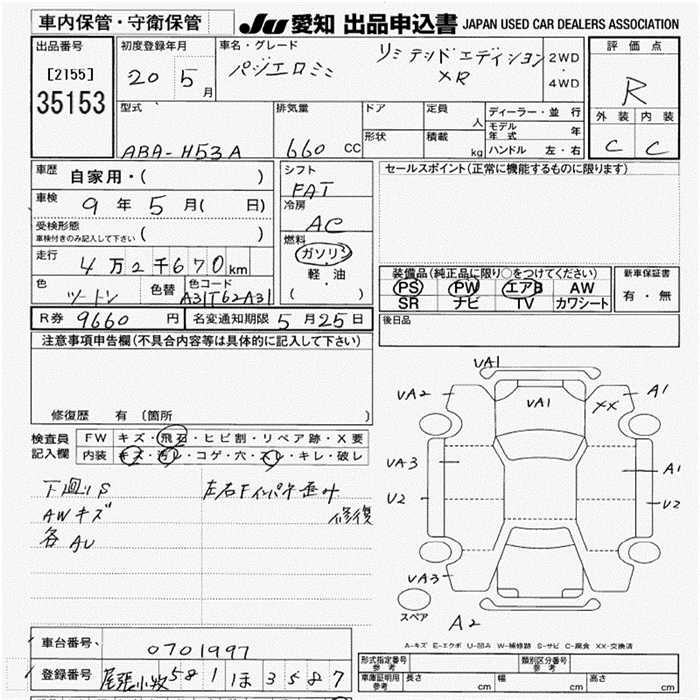 車内保管・守衛保管
JU 愛知 出品申込書 JAPAN USED CAR DEALERS ASSOCIATION
出品番号 初度登録年月 車名・グレード 評価点
[2155] 20 5月 パジェロミニ リミテッドエディション XR 2WD・4WD R
35153
型式 排気量 ドア 定員 人 ディーラー・並行 外装 内装
形状 積載 kg モデル年式 年
ABA-H53A 660 CC ハンドル 左・右 C C
車歴 自家用・( ) シフト FAT セールスポイント(正常に機能するものに限ります)
車検 9年5月( 日) 冷房 AC
受検形態 車検付きのみ記入して下さい ( ) 燃料 ガソリン・軽油 ( )
走行 4万2千670km
装備品(純正品に限り○をつけてください) 新車保証書
PS PW エアB AW 有・無
SR ナビ TV カワシート
色 ツートン 色替 色コード A31T62A31
R券 9660円 名変通知期限 5月25日 後日品
注意事項申告欄(不具合内容等は具体的に記入して下さい)
修復歴 有 (箇所 )
検査員記入欄 FW キズ・飛石・ヒビ割・リペア跡・X要
内装 キズ・汚レ・コゲ・穴・スレ・キレ・破レ
下廻りS
AWキズ 修復
各AU
VA1
VA2 VA1 XX A1
VA3 A1
U2 U2
VA3
スペア A2
A-キズ E-エクボ U-凹み W-補修跡 S-サビ C-腐食 XX-交換済
車台番号 0701997
形式指定番号 参考 類別区分番号 参考
登録番号 尾張小牧 581 ほ 3587
車庫証明用 参考 長さ cm 幅 cm 高さ cm